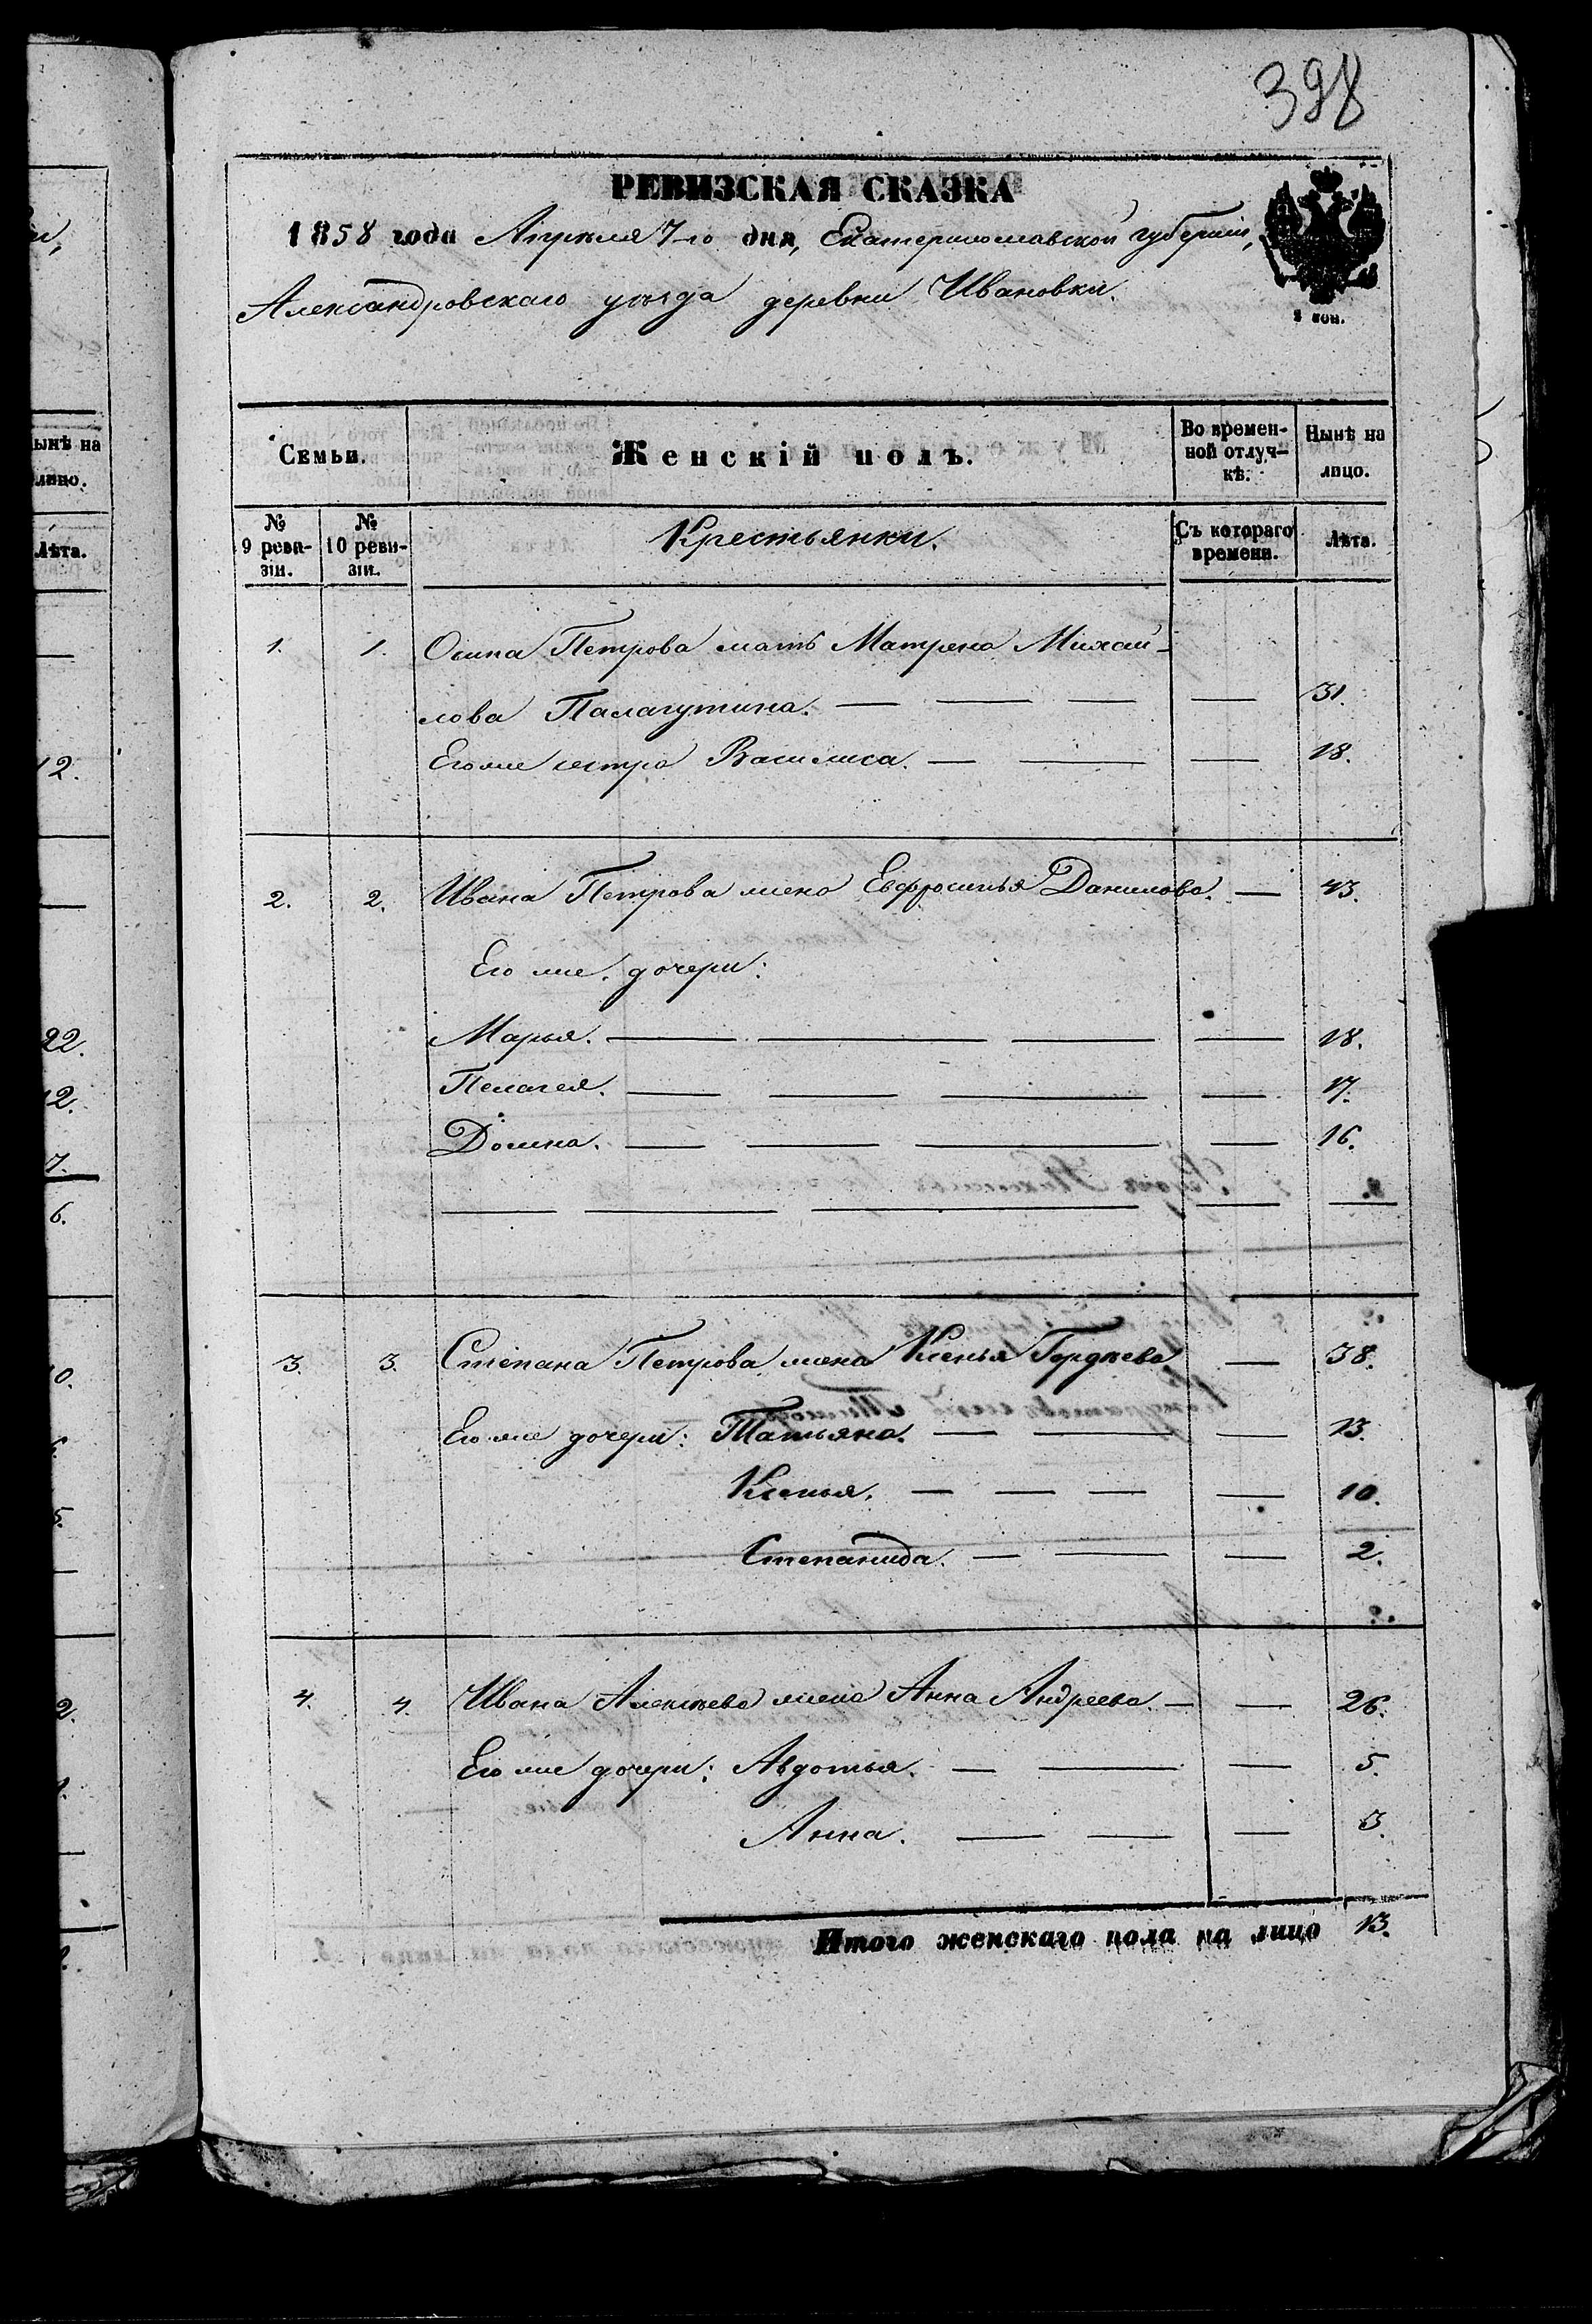 398
РЕВИЗСКАЯ СКАЗКА
1858 года Апреля 7-го дня, Екатеринославской губерніи,
Александровскаго уѣзда деревни Ивановки.
Семьи. Женскій полъ. Во времен-ной отлуч-кѣ. Нынѣ на лицо.
№ 9 реви-зіи. № 10 реви-зіи. Крестьянки. Съ котораго времени. Лѣта.
1. 1. Осипа Петрова мать Матрена Михай-
лова Палагутина. — — — — 31.
Его же сестра Василиса. — — — 18.
2. 2. Ивана Петрова жена Евфросинья Данилова. — 43.
Его же дочери:
Марья. — — — — 18.
Пелагея. — — — — 17.
Домна. — — — — 16.
3. 3. Степана Петрова жена Ксенья Гордѣева — 38.
Его же дочери: Татьяна. — — — 13.
Ксенья. — — — — 10.
Степанида. — — — 2.
4. 4. Ивана Алексѣева жена Анна Андреева. — — 26.
Его же дочери: Авдотья. — — — 5.
Анна. — — — 3.
Итого женскаго пола на лицо 13.
нынѣ на
лицо.
Лѣта.
12.
22.
12.
7.
6.